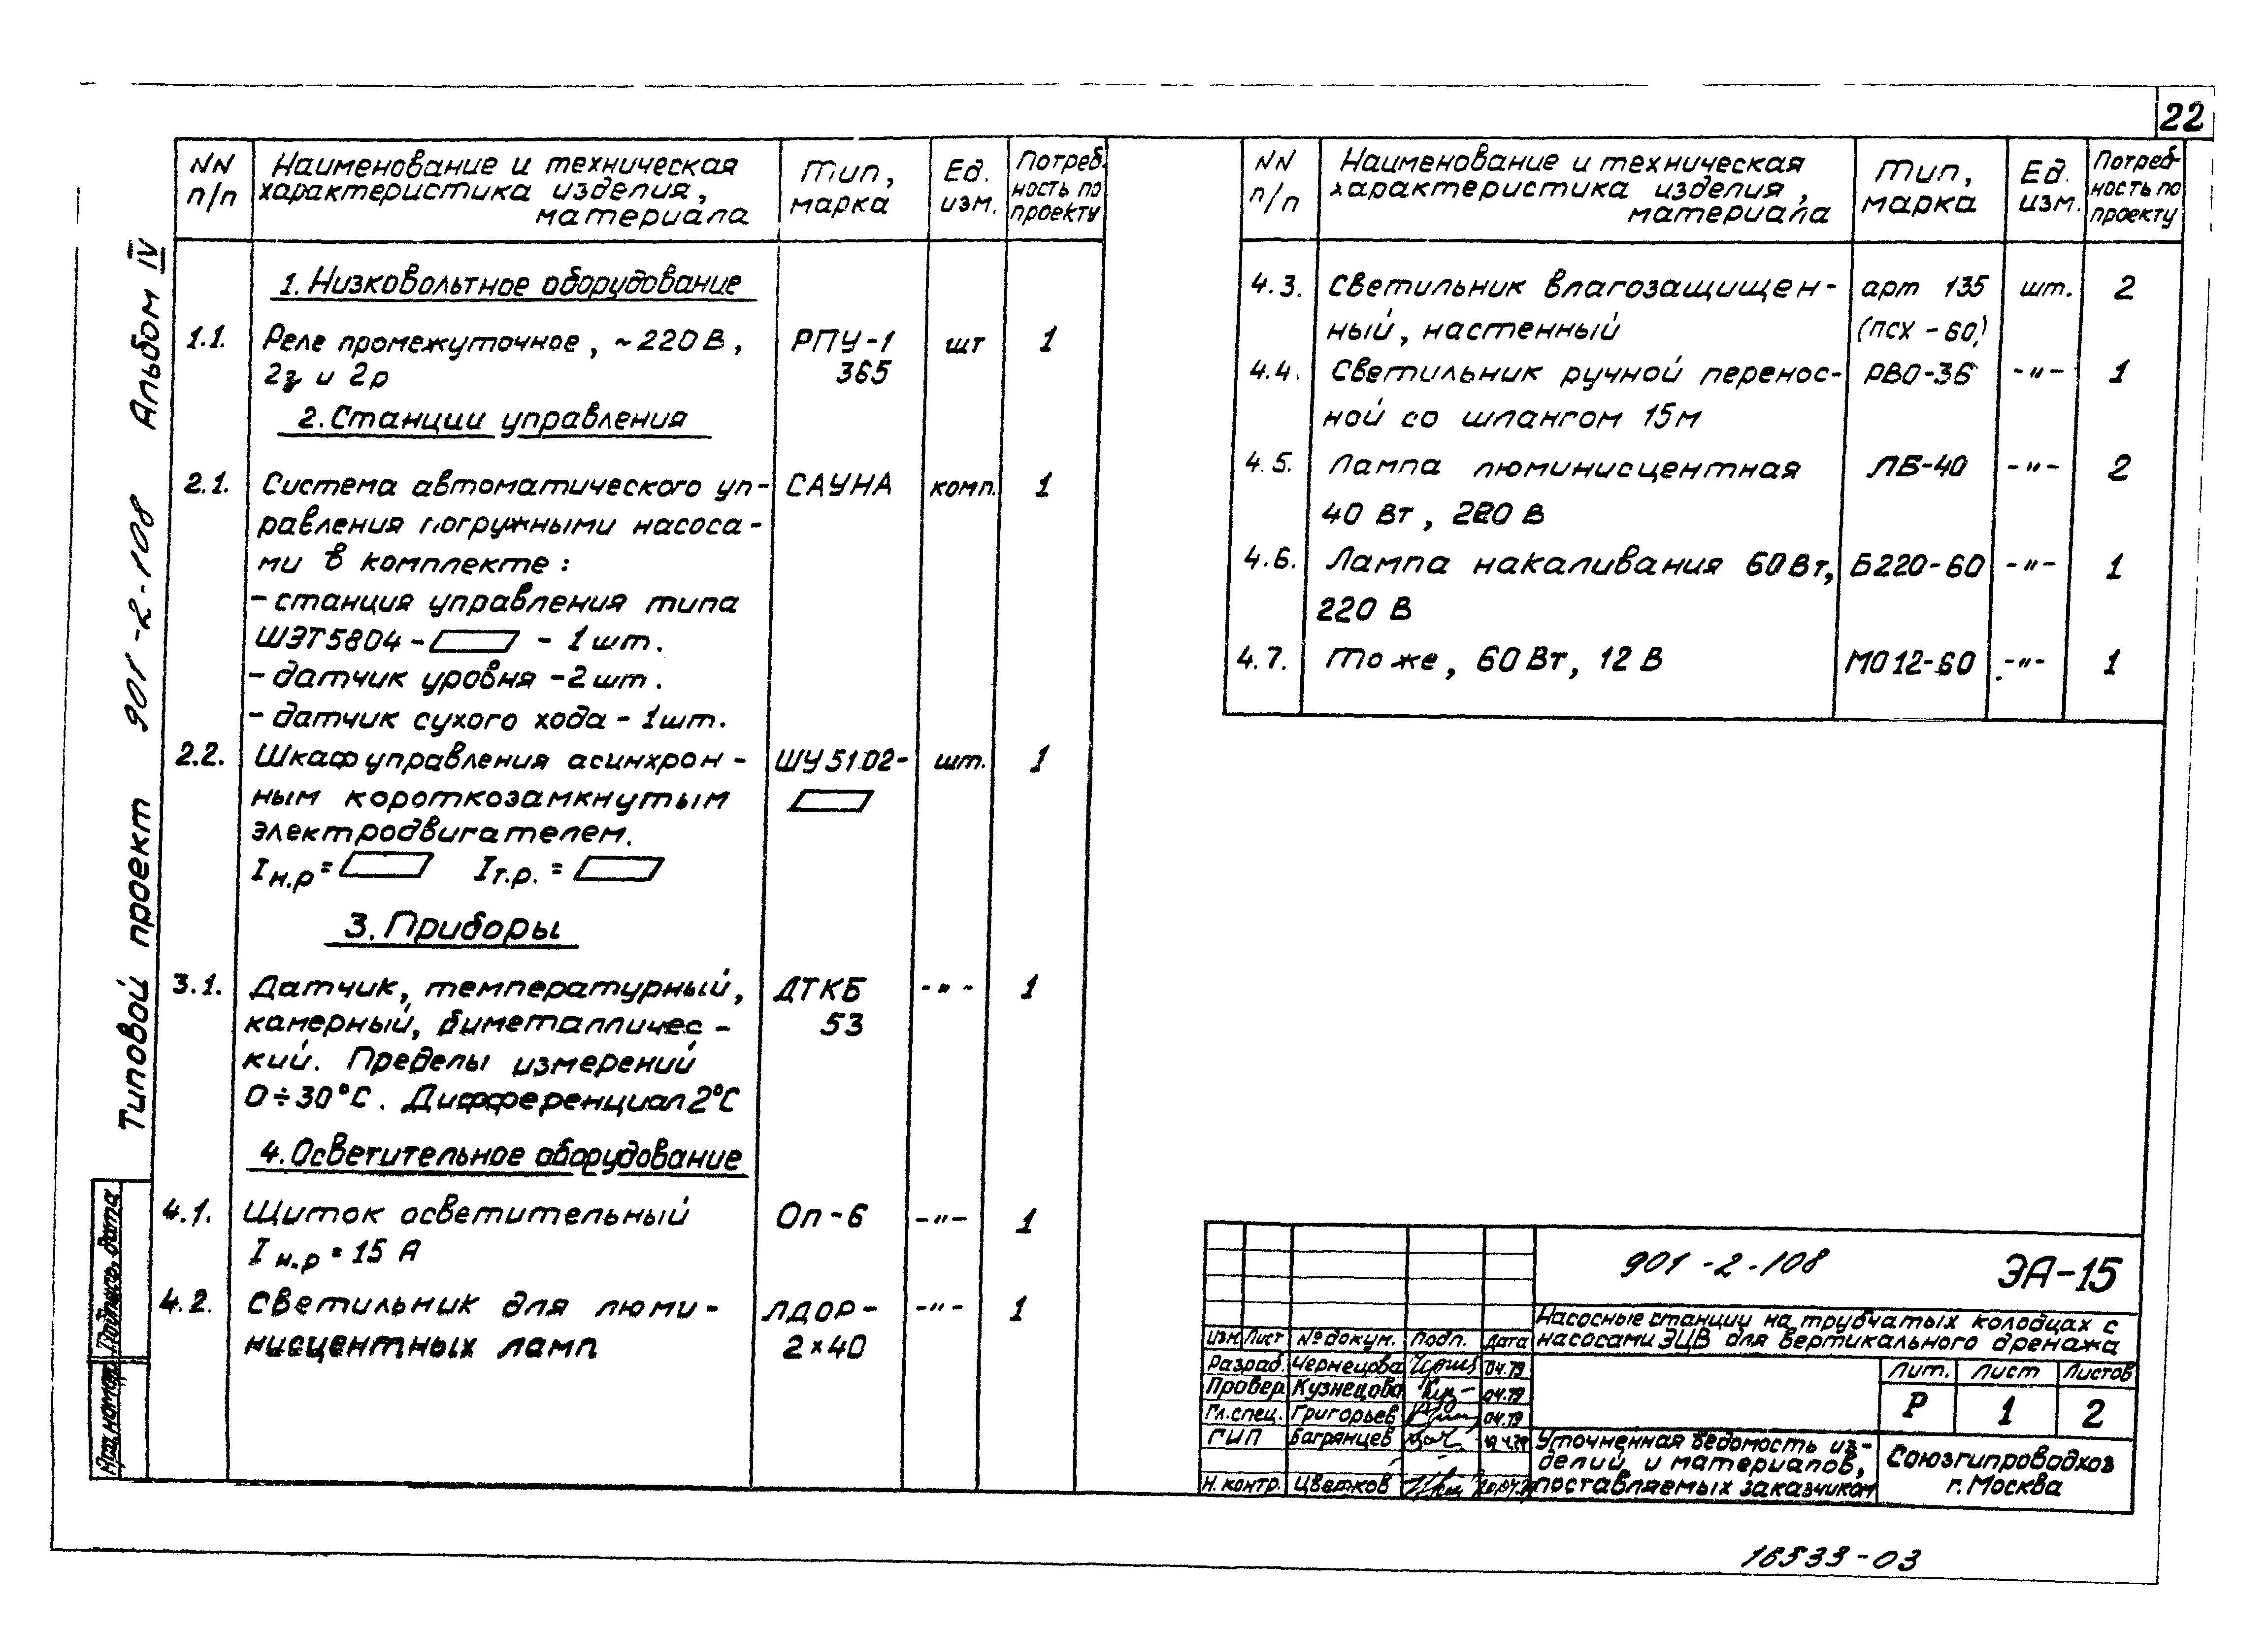 22
Типовой проект 901-2-108 Альбом IV
NN п/п
Наименование и техническая
характеристика изделия,
материала
Тип,
марка
Ед.
изм.
Потреб-
ность по
проекту
1. Низковольтное оборудование
1.1. Реле промежуточное, ~220В, РПУ-1 шт 1
2з и 2р 365
2. Станции управления
2.1. Система автоматического уп- САУНА комп. 1
равления погружными насоса-
ми в комплекте:
- станция управления типа
ШЭТ5804- - 1 шт.
- датчик уровня - 2 шт.
- датчик сухого хода - 1 шт.
2.2. Шкаф управления асинхрон- ШУ5102- шт. 1
ным короткозамкнутым
электродвигателем.
Iн.р = Iт.р. =
3. Приборы
3.1. Датчик, температурный, ДТКБ -"- 1
камерный, биметалличес- 53
кий. Пределы измерений
0÷30°С. Дифференциал 2°С
4. Осветительное оборудование
4.1. Щиток осветительный Оп-6 -"- 1
I н.р = 15 А
4.2. Светильник для люми- ЛДОР- -"- 1
нисцентных ламп 2×40
NN п/п
Наименование и техническая
характеристика изделия,
материала
Тип,
марка
Ед.
изм.
Потреб-
ность по
проекту
4.3. Светильник влагозащищен- арт 135 шт. 2
ный, настенный (ПСХ-60)
4.4. Светильник ручной перенос- РВО-36 -"- 1
ной со шлангом 15м
4.5. Лампа люминисцентная ЛБ-40 -"- 2
40 Вт, 220 В
4.6. Лампа накаливания 60Вт, Б220-60 -"- 1
220 В
4.7. То же, 60 Вт, 12 В МО12-60 -"- 1
901-2-108 ЭА-15
Насосные станции на трубчатых колодцах с
насосами ЭЦВ для вертикального дренажа
Изм Лист № докум. Подп. Дата
Разраб. Чернецова 04.79
Провер. Кузнецова 04.79
Гл.спец. Григорьев 04.79
ГИП Багрянцев
Н. контр. Цветков
Лит. Лист Листов
Р 1 2
Уточненная ведомость из-
делий и материалов,
поставляемых заказчиком
Союзгипроводхоз
г. Москва
Подпись, дата
16533-03